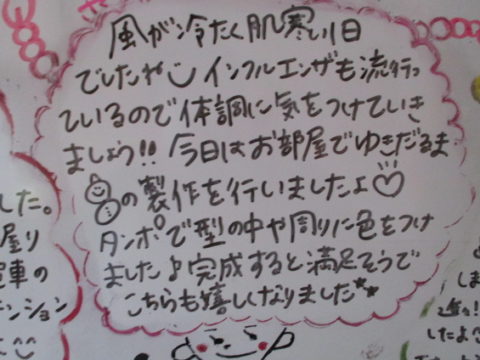 風が冷たく肌寒い日
でしたね インフルエンザも流行っ
ているので体調に気をつけていき
ましょう!! 今日はお部屋でゆきだるま
の製作を行いましたよ♡
タンポで型の中や周りに色をつけ
ました♪完成すると満足そうで
こちらも嬉しくなりました★★
した。
屋り
車の
ンション